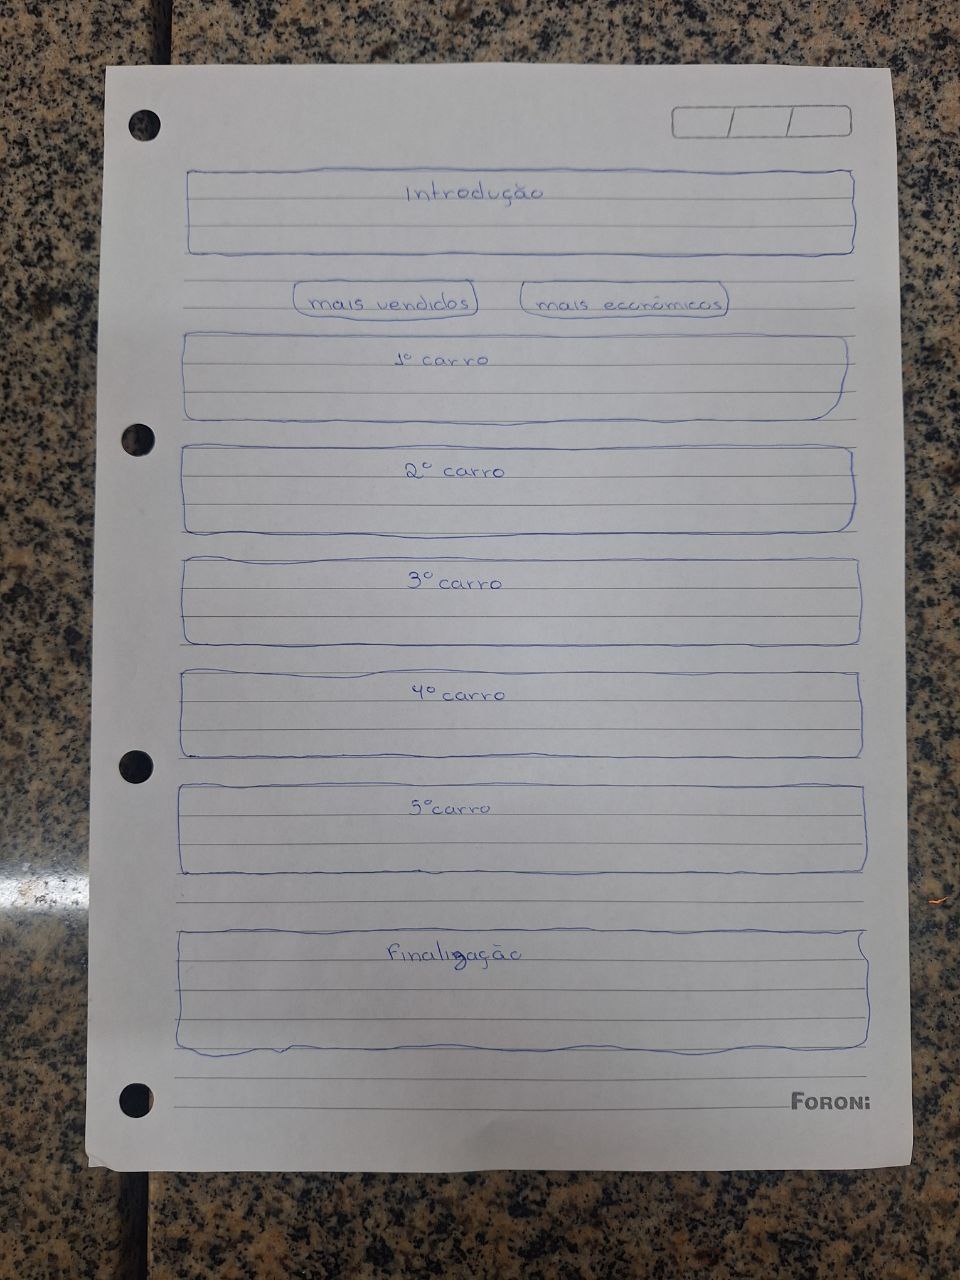 Introdução
mais vendidos mais econômicos
1º carro
2º carro
3º carro
4º carro
5º carro
Finalização
FORONI